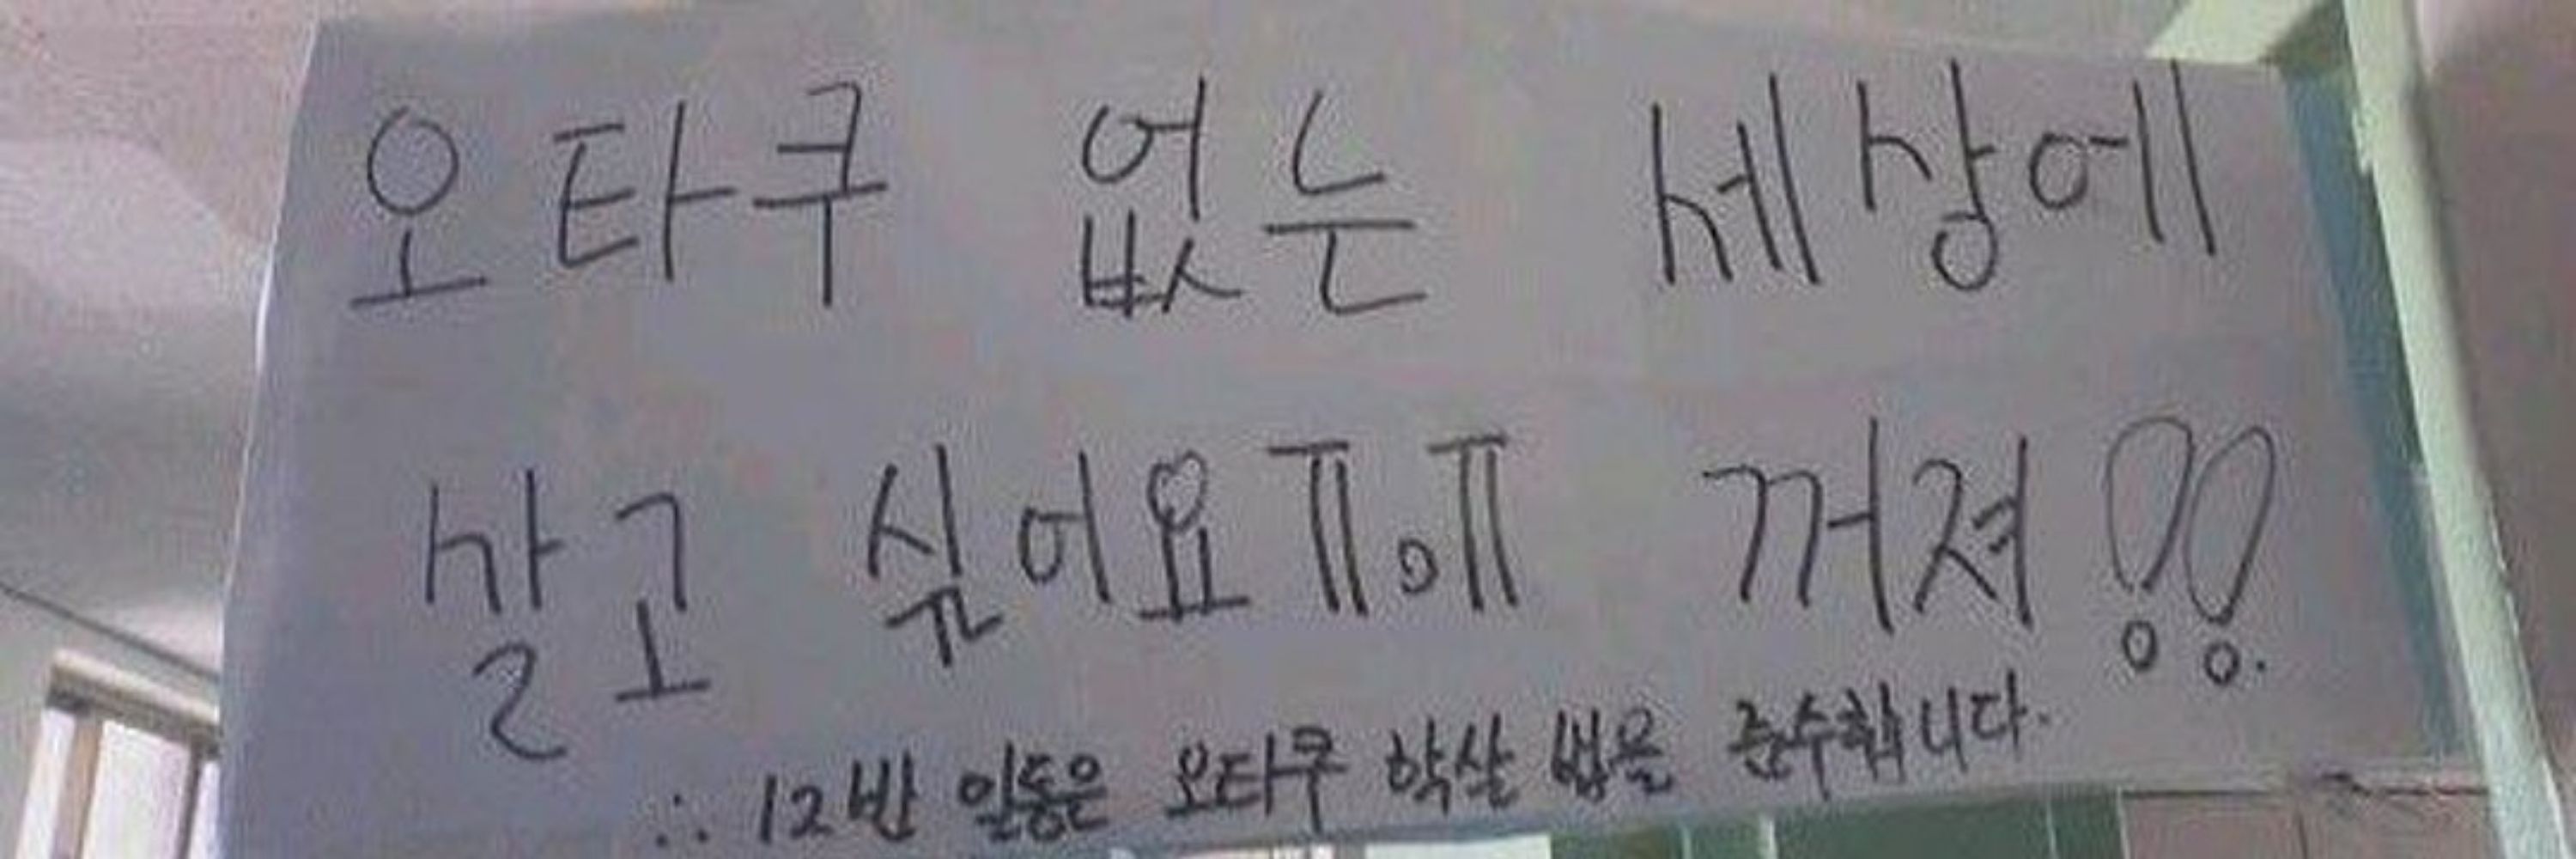 오타쿠 없는 세상에
살고 싶어요ㅠㅠ 꺼져!!
∴ 12반 일동은 오타쿠 학살 법을 준수합니다.